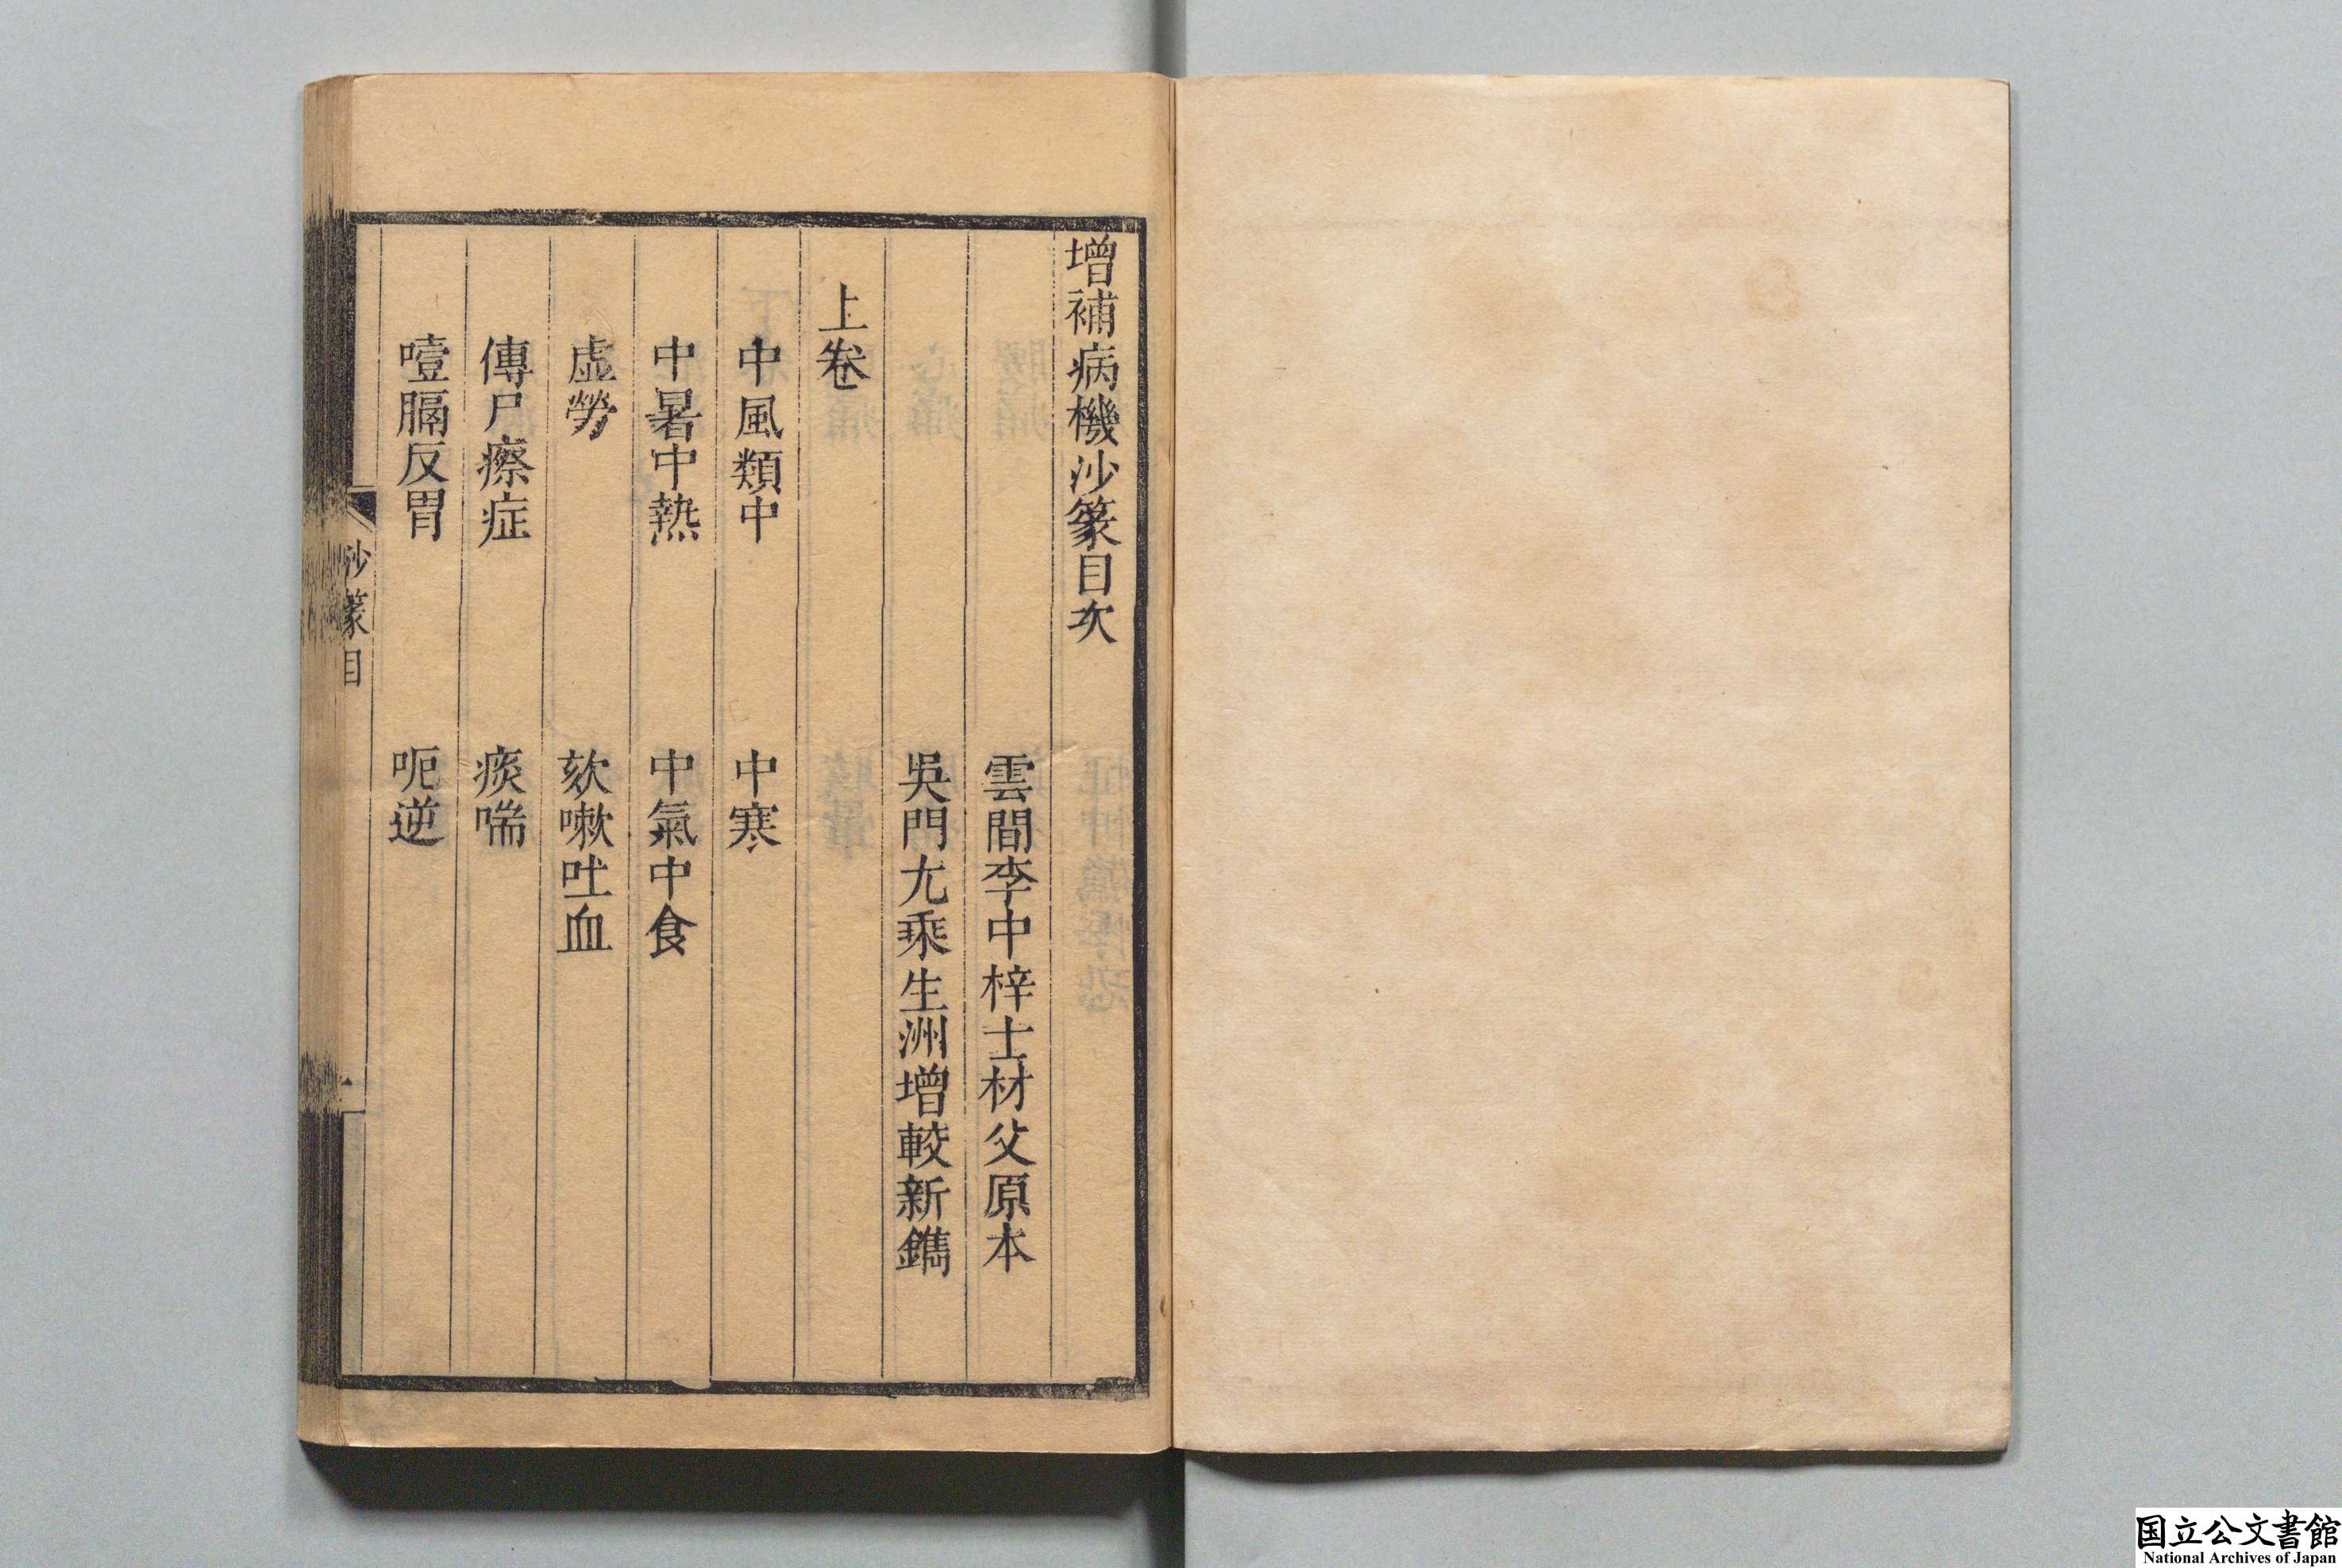 增補病機沙篆目次
雲間李中梓士材父原本
吳門尤乘生洲增較新鐫
上卷
中風類中　中寒
中暑中熱　中氣中食
虛勞　欬嗽吐血
傳尸瘵症　痰喘
噎膈反胃　呃逆
沙篆目
一
国立公文書館
National Archives of Japan